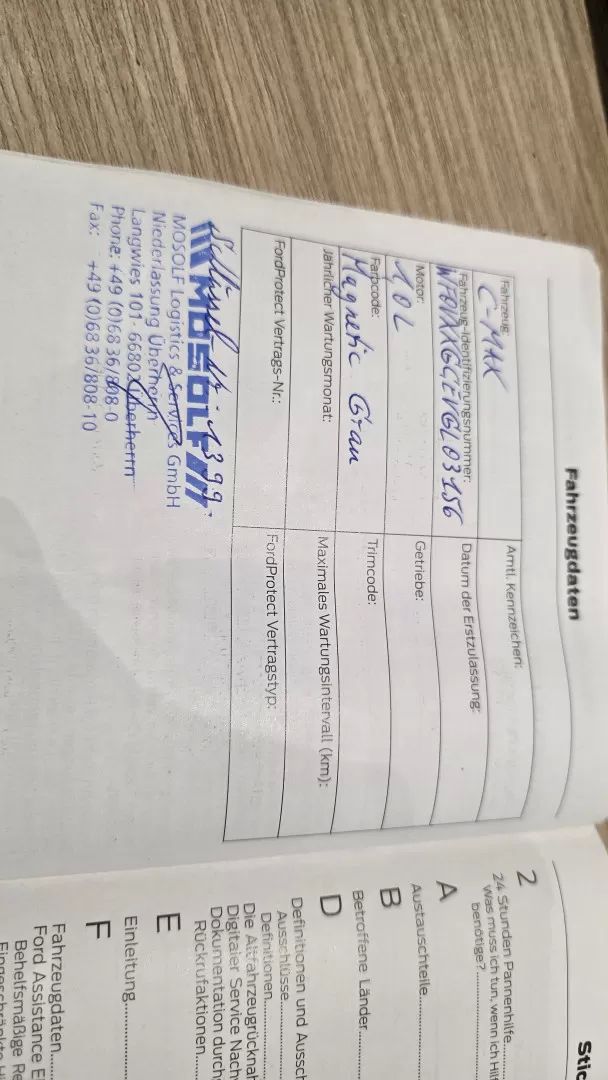 Fahrzeugdaten
Fahrzeug:
C-MAX
Amtl. Kennzeichen:
Fahrzeug-Identifizierungsnummer:
Datum der Erstzulassung:
Motor:
1.0 L
Getriebe:
Farbcode:
Magnetic Grau
Trimcode:
Jährlicher Wartungsmonat:
Maximales Wartungsintervall (km):
FordProtect Vertrags-Nr.:
FordProtect Vertragstyp:
MOSOLF
MOSOLF Logistics & Services GmbH
Niederlassung Überherrn
Langwies 101 - 66802 Überherrn
Phone: +49 (0)68 36/808-0
Fax: +49 (0)68 36/808-10
Stic
2
24 Stunden Pannenhilfe
Was muss ich tun, wenn ich Hil
benötige?
A
Austauschteile
B
Betroffene Länder
D
Definitionen und Aussch
Ausschlüsse
Definitionen
Die Altfahrzeugrücknah
Digitaler Service Nach
Dokumentation durch
Rückrufaktionen
E
Einleitung
F
Fahrzeugdaten
Ford Assistance E
Behelfsmäßige Re